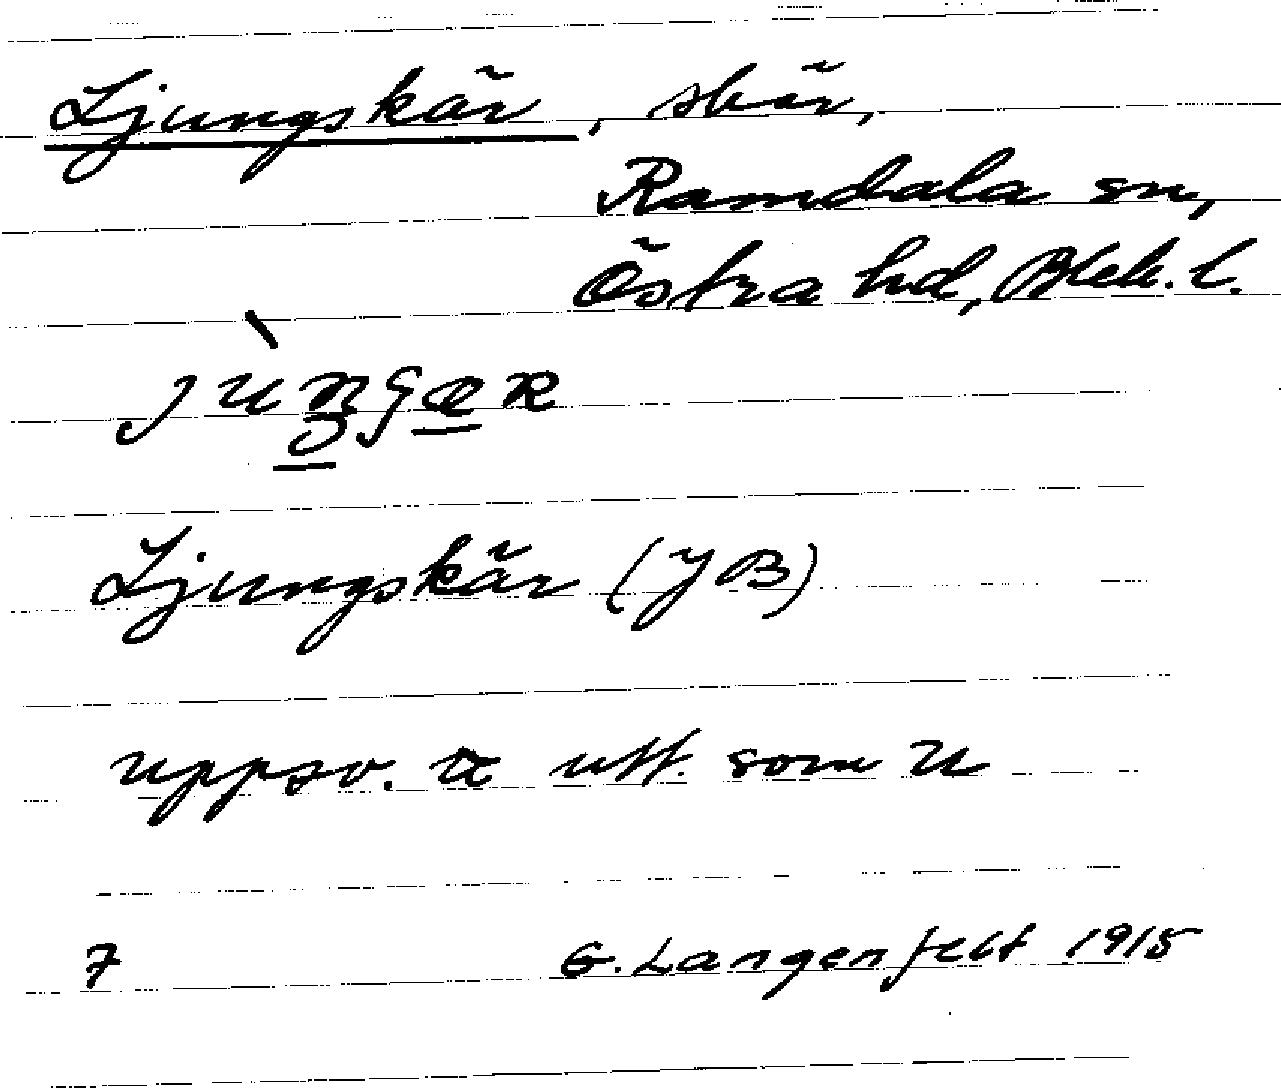 Ljungskär, skär,
Ramdala sn,
Östra hd, Blek. l.
Ljungskär (JB)
uppsv. u utt. som u
7 G. Langenfelt 1915